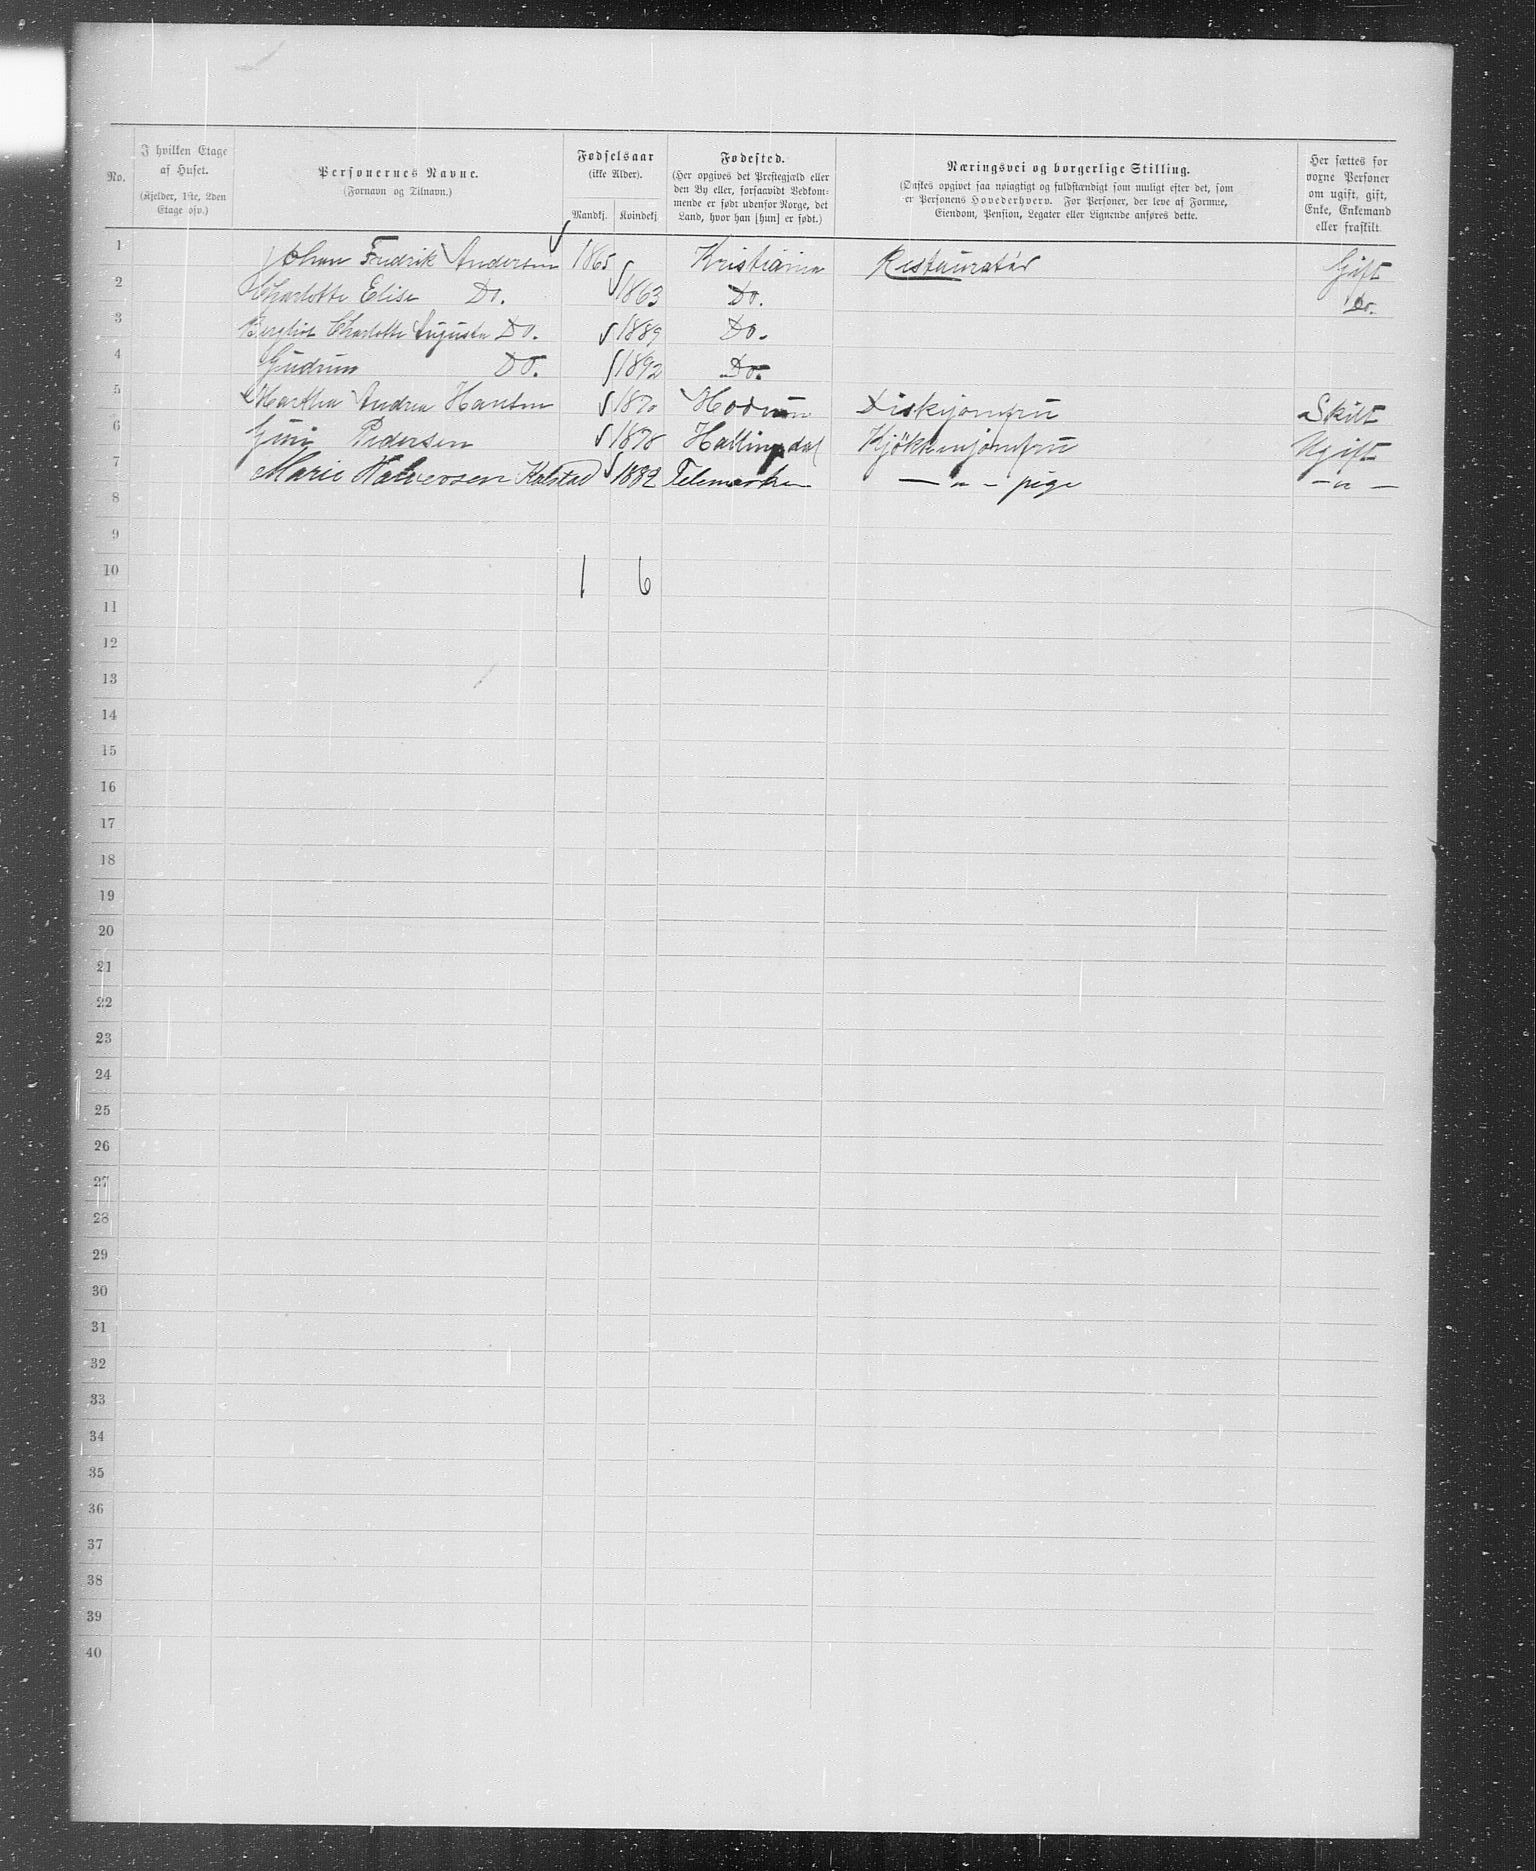 No. I hvilken Etage af Huset. (Kjelder, 1ste, 2den Etage osv.) Personernes Navne. (Fornavn og Tilnavn.) Fødselsaar (ikke Alder). Mandkj. Kvindekj. Fødested. (Her opgives det Præstegjæld eller den By eller, forsaavidt Vedkommende er født udenfor Norge, det Land, hvor han [hun] er født.) Næringsvei og borgerlige Stilling. (Ønskes opgivet saa nøiagtigt og fuldstændigt som muligt efter det, som er Personens Hovederhverv. For Personer, der leve af Formue, Eiendom, Pension, Legater eller Lignende anføres dette. Her sættes for voxne Personer om ugift, gift, Enke, Enkemand eller fraskilt.
1 Johan Fredrik Andersen 1865 Kristiania Restauratør Gift
2 Charlotte Elise Do. 1863 Do. Do.
3 Bergliot Charlotte Augusta Do. 1889 Do.
4 Gudrun Do. 1892 Do.
5 Martha Andrea Hansen 1870 Modum Diskjomfru Skilt
6 Guri Pedersen 1878 Hallingdal Kjøkkenjomfru Ugift
7 Marie Halvorsen Kalstad 1882 Telemarken — " – pige — " —
8
9
10 1 6
11
12
13
14
15
16
17
18
19
20
21
22
23
24
25
26
27
28
29
30
31
32
33
34
35
36
37
38
39
40